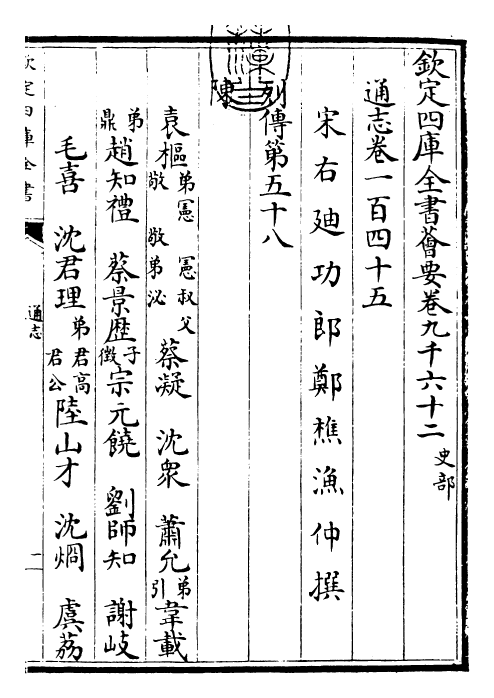 欽定四庫全書薈要卷九千六十二 史部
通志卷一百四十五
宋右廸功郎鄭樵漁仲撰
列傳第五十八
陳
袁樞 弟憲 憲叔父敬 敬弟泌 蔡凝 沈衆 蕭允 弟引 韋載
弟鼎 趙知禮 蔡景歴 子徵 宗元饒 劉師知 謝岐
毛喜 沈君理 弟君高 君公 陸山才 沈烱 虞荔
欽定四庫全書
通志